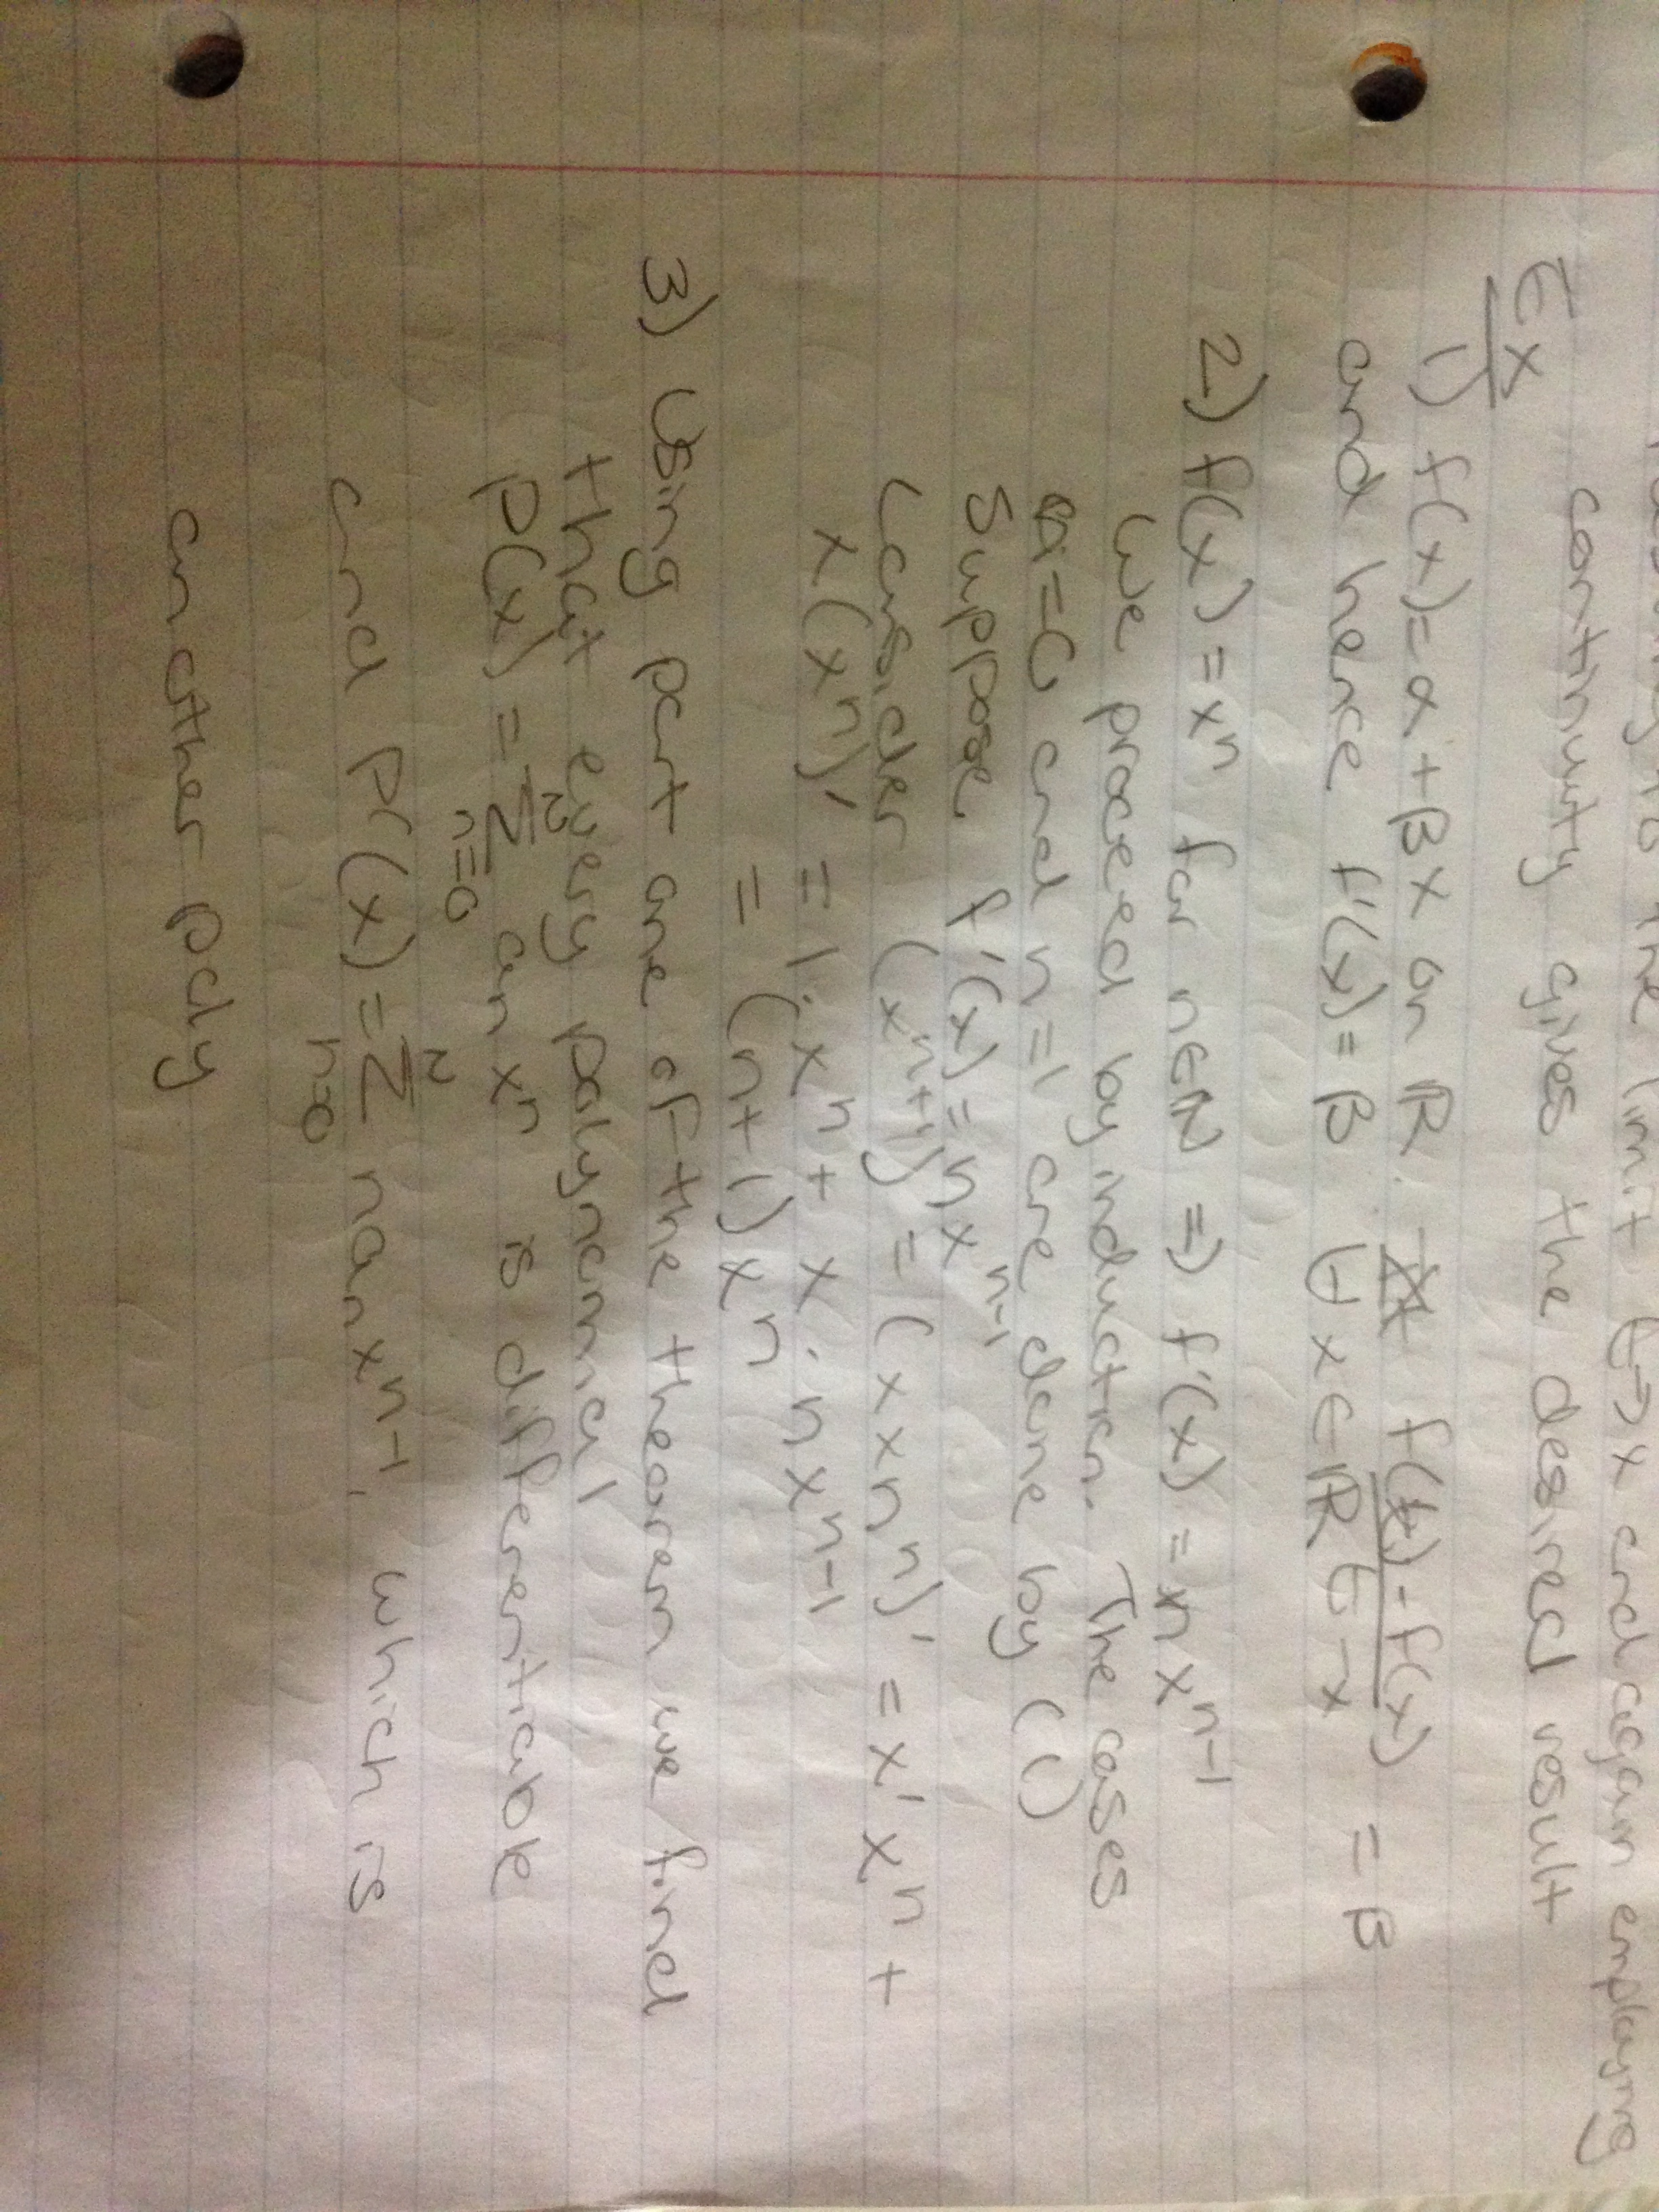 the limit t→x and again employing
continuity gives the desired result
Ex
1) f(x)=α+βx on ℝ. f(t)-f(x)/t-x = β
and hence f'(x)=β ∀x∈ℝ
2) f(x)=xⁿ for n∈ℕ => f'(x)=nxⁿ⁻¹
We proceed by induction. The cases
n=0 and n=1 are done by (1)
Suppose f'(x)=nxⁿ⁻¹
Consider (xⁿ⁺¹)' = (xxⁿ)' = x'xⁿ +
x(xⁿ)' = 1·xⁿ + x·nxⁿ⁻¹
= (n+1)xⁿ
3) Using part one of the theorem we find
that every polynomial
p(x) = Σ n=0 N anxⁿ is differentiable
and p'(x) = Σ n=0 N nanxⁿ⁻¹, which is
another poly